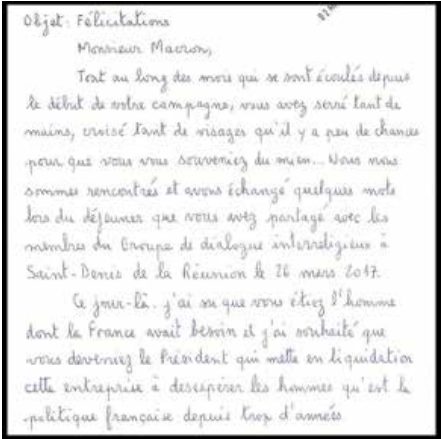 Objet: Félicitations
Monsieur Macron,
Tout au long des mois qui se sont écoulés depuis
le début de votre campagne, vous avez serré tant de
mains, croisé tant de visages qu'il y a peu de chances
pour que vous vous souveniez du mien... Nous nous
sommes rencontrés et avons échangé quelques mots
lors du déjeuner que vous avez partagé avec les
membres du Groupe de dialogue interreligieux à
Saint-Denis de la Réunion le 26 mars 2017.
Ce jour-là, j'ai su que vous étiez l'homme
dont la France avait besoin et j'ai souhaité que
vous deveniez le Président qui mette en liquidation
cette entreprise à desespérer les hommes qu'est la
politique française depuis trop d'années